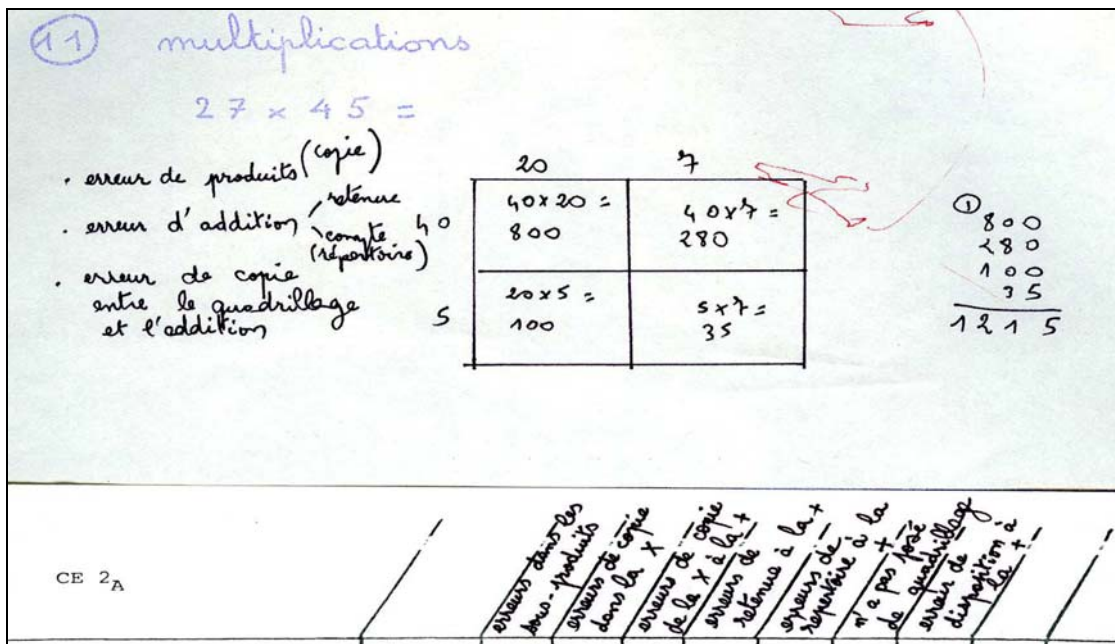 11 multiplications
27 x 45 =
. erreur de produits (copie)
. erreur d'addition retenue
compte
(répertoire)
. erreur de copie
entre le quadrillage
et l'addition
20 7
40 40x20 = 40x7=
800 280
5 20x5 = 5x7=
100 35
1
800
280
100
35
1215
CE 2A
erreurs dans les
sous-produits
erreurs de copie
dans la x
erreurs de copie
de la x à la +
erreurs de
retenue à la +
erreurs de
répertoire à la
+
n'a pas posé
de quadrillage
erreur de
disposition à
la +